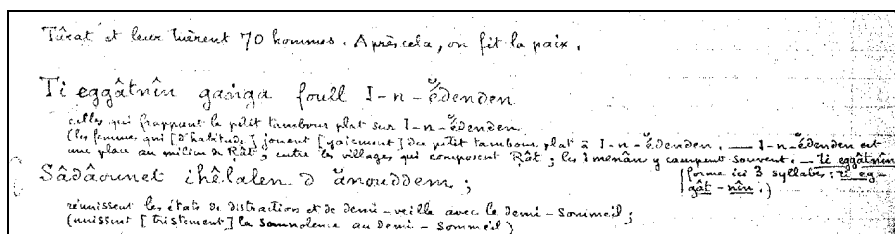 Tûrat et leur tuèrent 70 hommes. Après cela, on fit la paix.
Ti eggâtnîn ganga foull I-n-ĕdenden
celles qui frappent le petit tambour plat sur I-n-ĕdenden
(les femmes qui [d'habitude] jouent [gaiement] du petit tambour plat à I-n-ĕdenden. — I-n-ĕdenden est
une place au milieu de Ṛât, entre les villages qui composent Ṛât ; les imenân y campent souvent. — ti eggâtnîn
forme ici 3 syllabes : ti eg-
gât - nîn.)
Sâdâounet ihêlalen d ănouddem ;
réunissent les états de distraction et de demi-veille avec le demi-sommeil ;
(unissent [tristement] la somnolence au demi-sommeil)